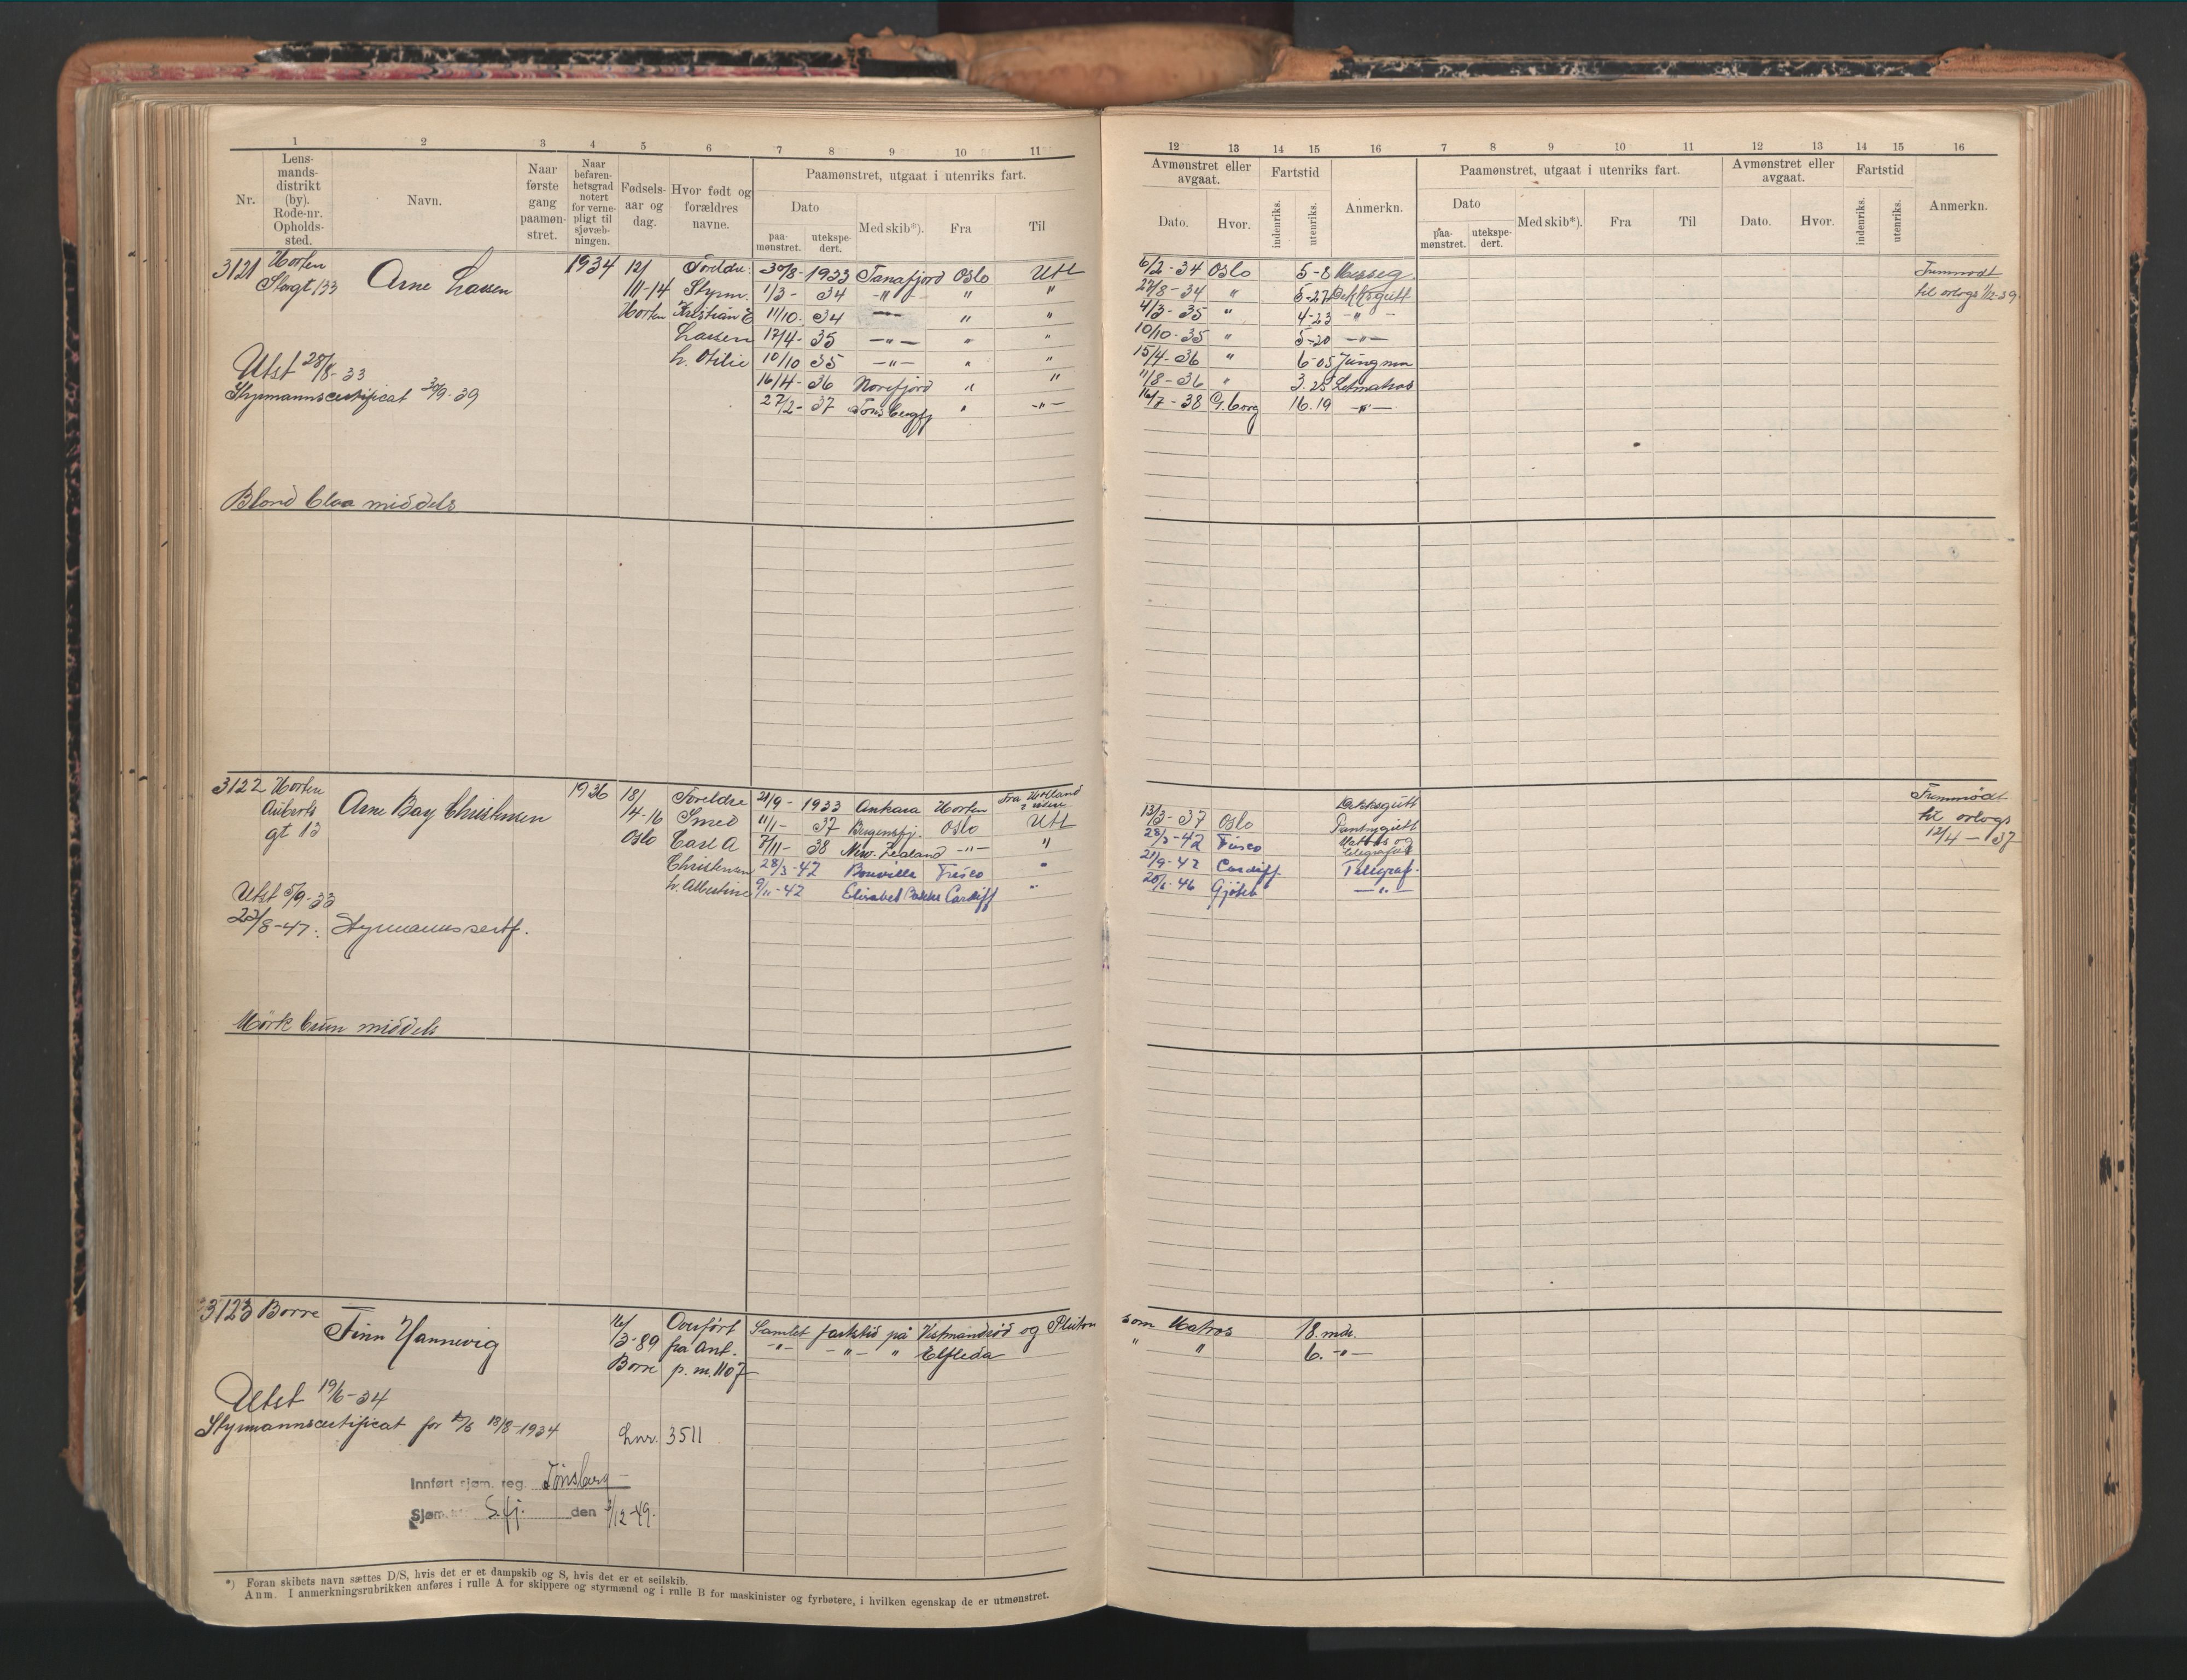 1 2 3 4 5 6 7 8 9 10 11
Nr.
Lens-
mands-
distrikt
(by).
Rode-nr.
Opholds-
sted.
Navn.
Naar
første
gang
paamøn-
stret.
Naar
befaren-
hetsgrad
notert
for verne-
pligt til
sjøvæb-
ningen.
Fødsels-
aar og
dag.
Hvor født og
forældres
navne.
Paamønstret, utgaat i utenriks fart.
Dato
paa-
mønstret.
utekspe-
dert.
Med skib*).
Fra
Til
3121 Horten Arne 1934 12/ Foreldre 30/8- 1933 Tanafjord Oslo Utl
Storgt 133 III-14 Styrm. 1/3- 34 -"- " "
Horten Kristian E 11/10. 34 -"- " "
17/4- 35 -"- " "
h. Otilie 10/10 35 -"- " "
Utst 28/8-33 16/4- 36 Norefjord " "
Styrmannscertificat 30/9-39 27/2- 37 " -"-
Blond blaa middels
3122 Horten Arne Bay Christensen 1936 18/ Foreldre 21/9- 1933 Ankara Horten Fra Holland
gt 13 14-16 Smed 11/1- 37 Bergensfj. Oslo Utl
Oslo Carl A 7/11- 38 New. Zealand -"- "
Christensen 28/3-42 Bonville Frisco "
h. Albertine 9/11-42 Elisabet Bakke Cardiff "
Utst 5/9-33
22/8-47: Styrmannssertf.
Mørk brun middels
3123 Borre Finn Hannevig 16/ Overført Samlet fartstid på Vestmanrød og Pluton
3-89 fra Ant. -"- -"- " Elfleda
Borre p. m. 1107
Utst 19/6-34
Styrmannscertificat for 18/8-1934 Lnr. 3511
Innført sjøm. reg. Tønsberg
Sjøm. S.fj. den /12-49.
*) Foran skibets navn sættes D/S, hvis det er et dampskib og S, hvis det er et seilskib.
Anm. I anmerkningsrubrikken anføres i rulle A for skippere og styrmænd og i rulle B for maskinister og fyrbøtere, i hvilken egenskap de er utmønstret.
12 13 14 15 16 7 8 9 10 11 12 13 14 15 16
Avmønstret eller
avgaat.
Dato.
Hvor.
Fartstid
indenriks.
utenriks.
Anmerkn.
Paamønstret, utgaat i utenriks fart.
Dato
paa-
mønstret.
utekspe-
dert.
Med skib*).
Fra
Til
Avmønstret eller
avgaat.
Dato.
Hvor.
Fartstid
indenriks.
utenriks.
Anmerkn.
6/2-34 Oslo 5-8 Messeg. Fremmødt
27/8-34 " 5-27 Dekksgutt til orlogs 1/12-39.
4/3-35 " 4-23 -"-
10/10-35 " 5-20 -"-
15/4-36 " 6-05 Jungmn
11/8-36 " 3.25 Letmatros
16/7-38 G.borg 16.19 -"-
Dekksgutt Fremmødt
13/3-37 Oslo Pantrygutt til orlogs
28/3-42 Frisco Matros og telegrafist 12/4-37
21/9-42 Cardiff. Telegraf.
20/6-46 -"-
som Matros 18. mdr.
" " 6. -"-